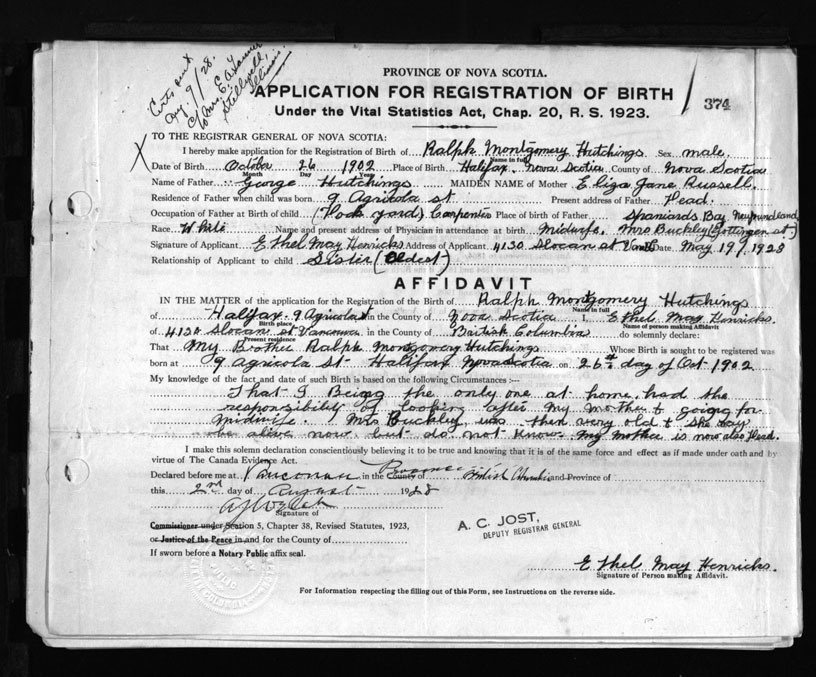 Certs sent
Aug 9/28.
c/o Mrs. E. O.
Illinois.
PROVINCE OF NOVA SCOTIA.
APPLICATION FOR REGISTRATION OF BIRTH
374
Under the Vital Statistics Act, Chap. 20, R. S. 1923.
TO THE REGISTRAR GENERAL OF NOVA SCOTIA:
X
I hereby make application for the Registration of Birth of Ralph Montgomery Hutchings Sex male.
Name in full
Date of Birth October 26 1902 Place of Birth Halifax. Nova Scotia County of Nova Scotia
Month Day Year
Name of Father George Hutchings MAIDEN NAME of Mother Eliza Jane Russell.
Residence of Father when child was born 9 Agricola st Present address of Father Dead.
Occupation of Father at Birth of child (Dock yard) Carpenter Place of birth of Father Spaniards Bay Newfundland
Race White Name and present address of Physician in attendance at birth Midwife. Mrs Buckley (Gottingen st)
Signature of Applicant Ethel May Henricks Address of Applicant 4130 Slocan st Van Date May 19/1928
Relationship of Applicant to child Sister (Oldest)
AFFIDAVIT
IN THE MATTER of the application for the Registration of the Birth of Ralph Montgomery Hutchings
Name in full
of Halifax. 9 Agricola st in the County of Nova Scotia I, Ethel May Henricks.
Birth place Name of person making Affidavit
of 4130 Slocan st Vancouver in the County of British Columbia do solemnly declare:
Present residence
That My Brother Ralph Montgomery Hutchings Whose Birth is sought to be registered was
born at 9 Agricola St. Halifax Nova Scotia on 26 day of Oct 1902
My knowledge of the fact and date of such Birth is based on the following Circumstances :—
That I Being the only one at home. had the
responsibility of looking after my mother & going for
midwife. Mrs Buckley, was then very old & she may
be alive now. but do not know. my mother is now also Dead.
I make this solemn declaration conscientiously believing it to be true and knowing that it is of the same force and effect as if made under oath and by
virtue of The Canada Evidence Act.
Declared before me at Vancouver in the County of Province British Columbia and Province of
this 2nd day of August 1928
Signature of
Commissioner under Section 5, Chapter 38, Revised Statutes, 1923,
or Justice of the Peace in and for the County of
If sworn before a Notary Public affix seal.
A. C. JOST,
DEPUTY REGISTRAR GENERAL
Ethel May Henricks.
Signature of Person making Affidavit.
For Information respecting the filling out of this Form, see Instructions on the reverse side.